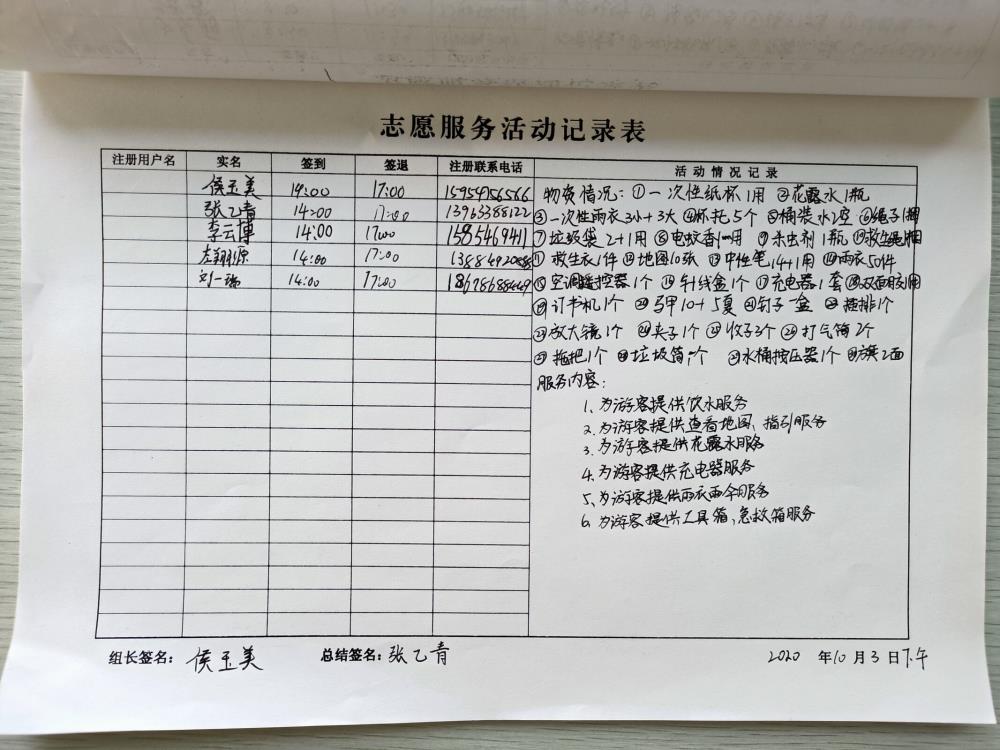 志愿服务活动记录表
注册用户名 实名 签到 签退 注册联系电话 活动情况记录
侯玉美 14:00 17:00 15959156566
张乙青 14:00 17:00 13965388122
李云博 14:00 17:00
左翔源 14:00 17:00
刘一瑞 14:00 17:00 18678688449
物资情况：①一次性纸杯1用 ②花露水1瓶
③一次性雨衣3小+3大 ④杯托5个 ⑤桶装水2空 ⑥绳子1捆
⑦垃圾袋2+1用 ⑧电蚊香1用 ⑨杀虫剂1瓶 ⑩救生绳1捆
⑪救生衣1件 ⑫地图10张 ⑬中性笔14+1用 ⑭雨衣50件
⑮空调遥控器1个 ⑯针线盒1个 ⑰充电器1套 ⑱双面胶1用
⑲订书机1个 ⑳马甲10+5夏 ㉑钉子一盒 ㉒插排1个
㉓放大镜1个 ㉔夹子1个 ㉕收子3个 ㉖打气筒2个
㉗拖把1个 ㉘垃圾筒1个 ㉙水桶按压器1个 ㉚旗2面
服务内容：
1、为游客提供饮水服务
2、为游客提供查看地图、指引服务
3、为游客提供花露水服务
4、为游客提供充电器服务
5、为游客提供雨衣雨伞服务
6、为游客提供工具箱、急救箱服务
组长签名：侯玉美 总结签名：张乙青 2020 年10月3日下午